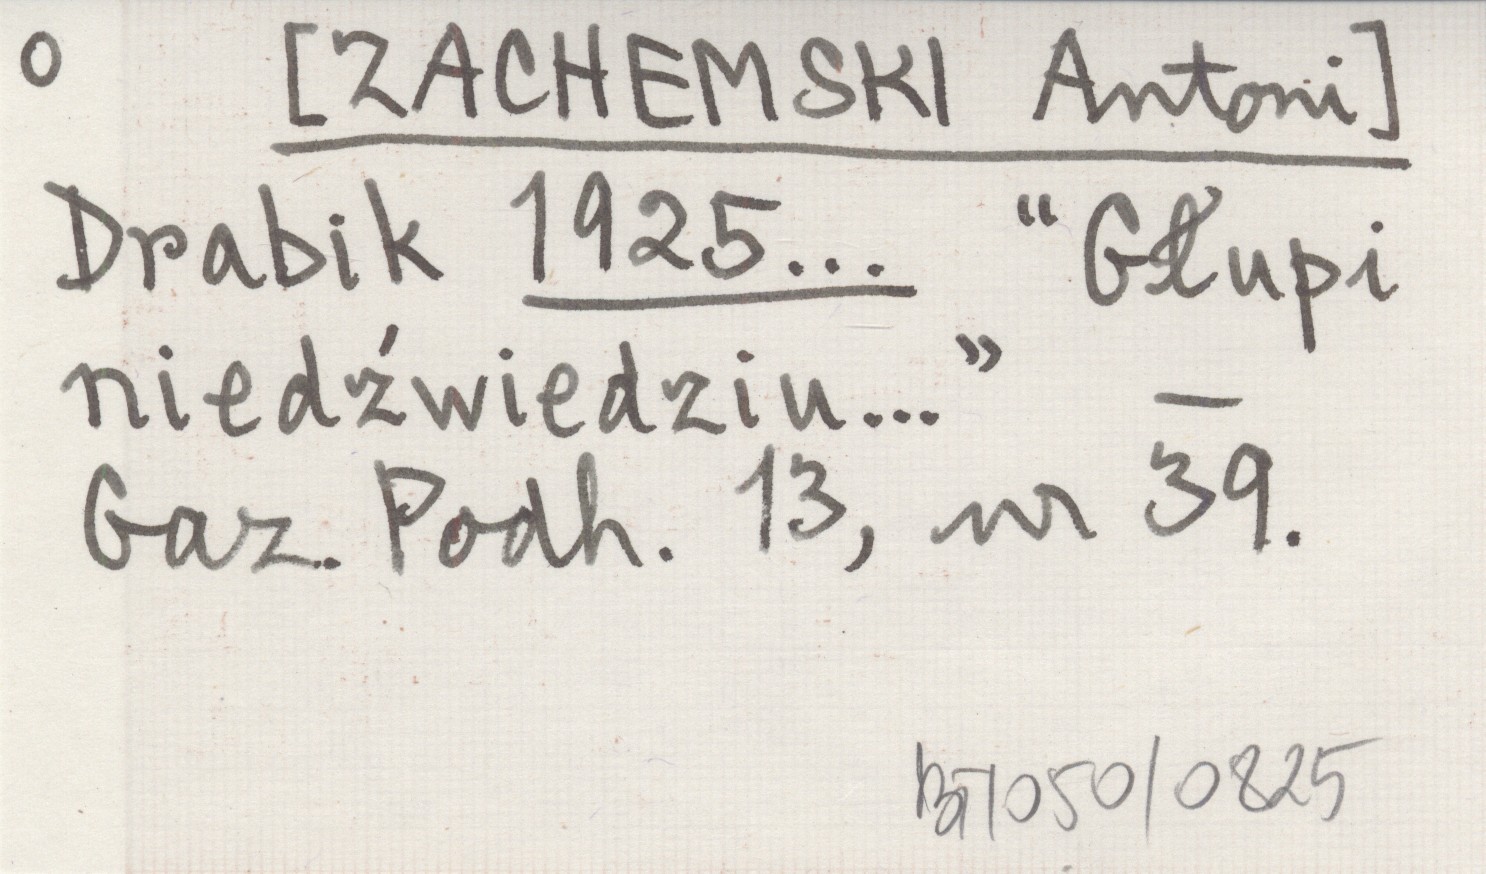 o [ZACHEMSKI Antoni]
Drabik 1925... "Głupi
niedźwiedziu..." —
Gaz. Podh. 13, nr 39.
BJ/050/0825